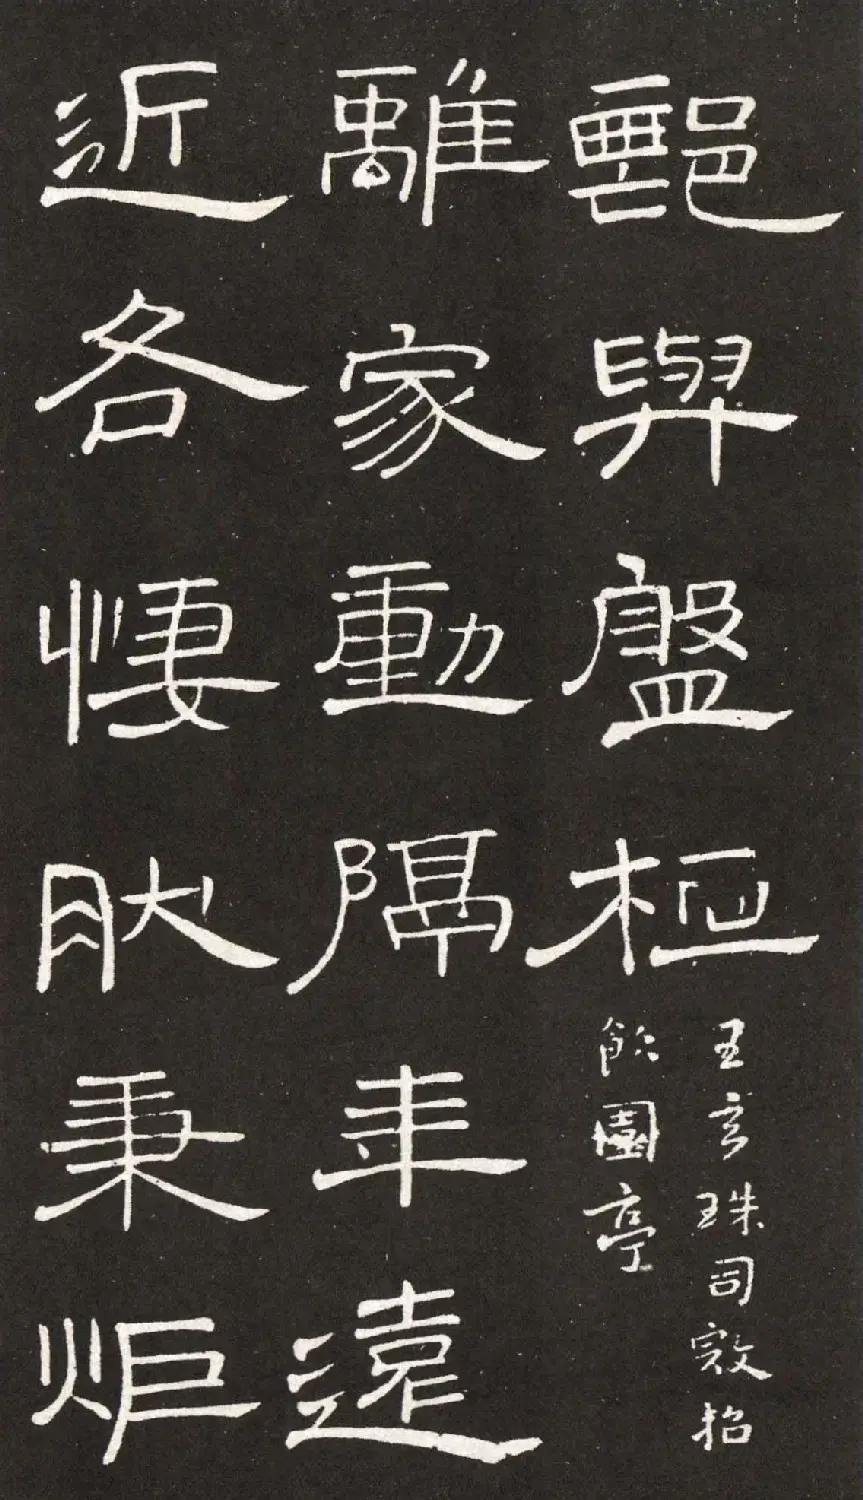 與盤桓
珠司敦招
飲園亭
離家動隔年遠
近各悽肰秉炬